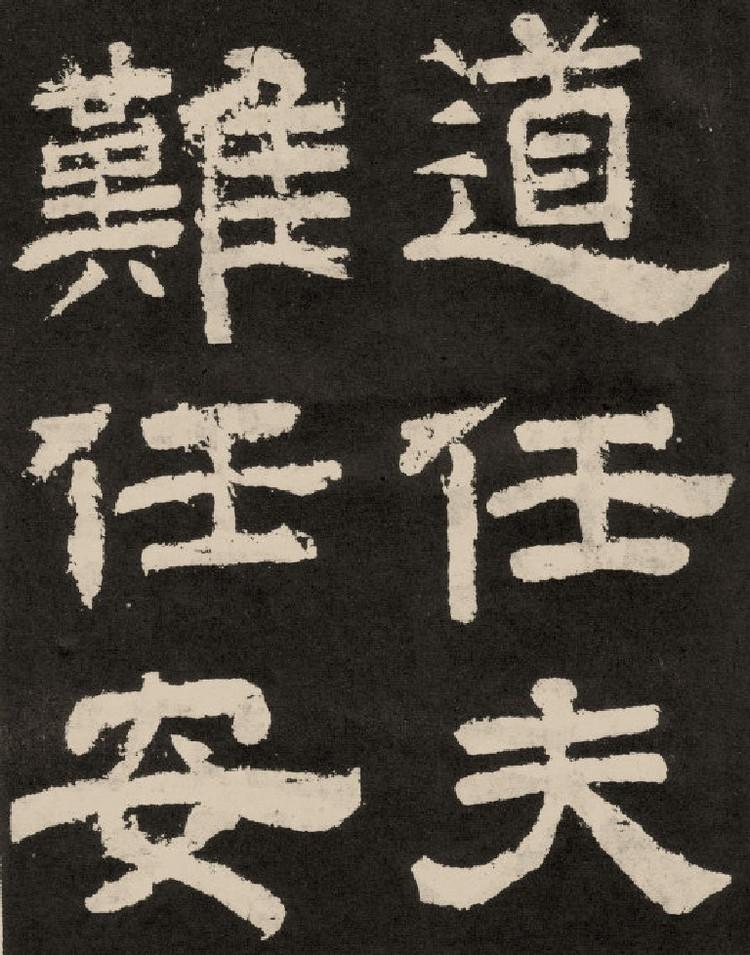 道任夫
難任安